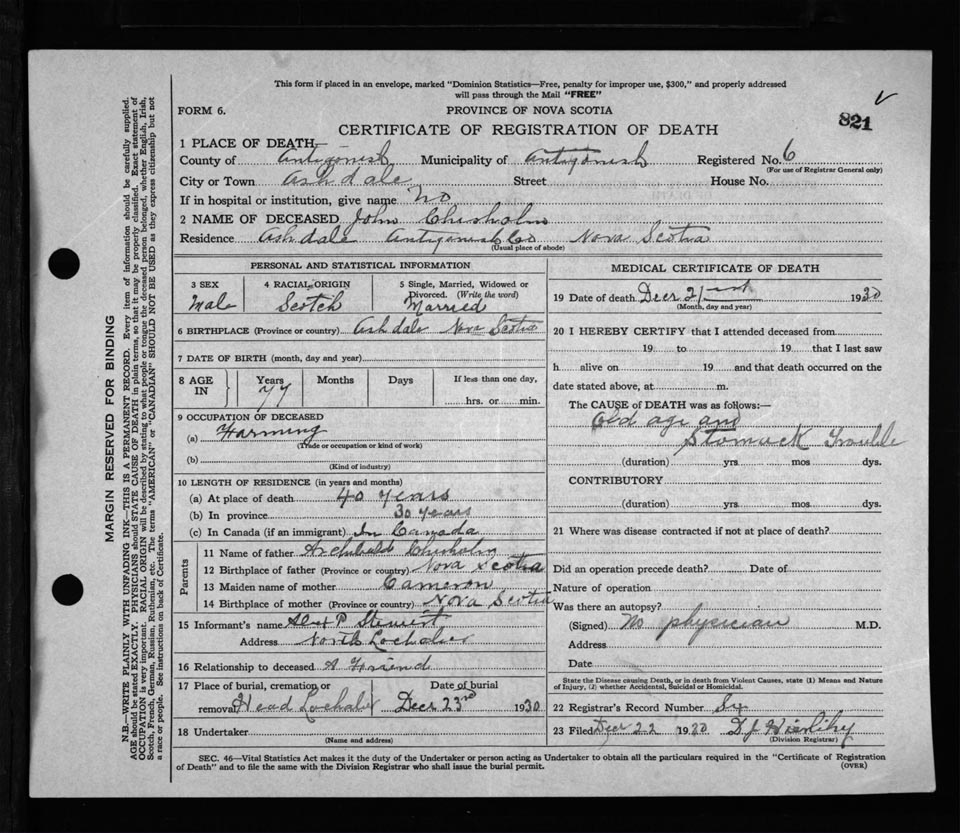 This form if placed in an envelope, marked "Dominion Statistics—Free, penalty for improper use, $300," and properly addressed
will pass through the Mail "FREE"
FORM 6.
PROVINCE OF NOVA SCOTIA
821
CERTIFICATE OF REGISTRATION OF DEATH
1 PLACE OF DEATH—
County of Antigonish Municipality of Antigonish Registered No. 6
(For use of Registrar General only)
City or Town Ashdale Street House No.
If in hospital or institution, give name No
2 NAME OF DECEASED John Chisholm
Residence Ashdale Antigonish Co Nova Scotia
(Usual place of abode)
PERSONAL AND STATISTICAL INFORMATION
3 SEX 4 RACIAL ORIGIN 5 Single, Married, Widowed or
Divorced. (Write the word)
Male Scotch Married
6 BIRTHPLACE (Province or country) Ashdale Nova Scotia
7 DATE OF BIRTH (month, day and year)
8 AGE IN Years Months Days If less than one day,
77 hrs. or min.
9 OCCUPATION OF DECEASED
(a) Farming
(Trade or occupation or kind of work)
(b)
(Kind of industry)
10 LENGTH OF RESIDENCE (in years and months)
(a) At place of death 40 years
(b) In province 30 years
(c) In Canada (if an immigrant) In Canada
Parents
11 Name of father Archibald Chisholm
12 Birthplace of father (Province or country) Nova Scotia
13 Maiden name of mother Cameron
14 Birthplace of mother (Province or country) Nova Scotia
15 Informant's name Alex P Stewart
Address North Lochaber
16 Relationship to deceased A Friend
17 Place of burial, cremation or Date of burial
removal Head Lochaber Decr 23rd 1930
18 Undertaker
(Name and address)
MEDICAL CERTIFICATE OF DEATH
19 Date of death Decr 21st 1930
(Month, day and year)
20 I HEREBY CERTIFY that I attended deceased from
19 to 19 that I last saw
h alive on 19 and that death occurred on the
date stated above, at m.
The CAUSE of DEATH was as follows:—
Old age and
Stomack Trouble
(duration) yrs. mos dys.
CONTRIBUTORY
(duration) yrs. mos dys.
21 Where was disease contracted if not at place of death?
Did an operation precede death? Date of
Nature of operation
Was there an autopsy?
(Signed) No physician M.D.
Address
Date
State the Disease causing Death, or in death from Violent Causes, state (1) Means and Nature
of Injury, (2) whether Accidental, Suicidal or Homicidal.
22 Registrar's Record Number Six
23 Filed Decr 22 1930 D J
(Division Registrar)
SEC. 46—Vital Statistics Act makes it the duty of the Undertaker or person acting as Undertaker to obtain all the particulars required in the "Certificate of Registration
of Death" and to file the same with the Division Registrar who shall issue the burial permit.
(OVER)
MARGIN RESERVED FOR BINDING
N.B.—WRITE PLAINLY WITH UNFADING INK—THIS IS A PERMANENT RECORD. Every item of information should be carefully supplied.
AGE should be stated EXACTLY. PHYSICIANS should STATE CAUSE OF DEATH in plain terms, so that it may be properly classified. Exact statement of
OCCUPATION is very important. RACIAL ORIGIN will be described by stating to what people or tongue the deceased person belonged, whether English, Irish,
Scotch, French, German, Russian, Ruthenian, etc. The terms "AMERICAN" or "CANADIAN" SHOULD NOT BE USED as they express citizenship but not
a race or people. See instructions on back of Certificate.